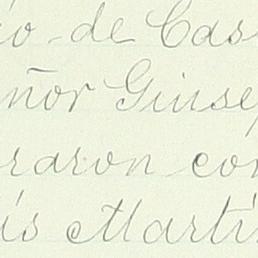 io de Cas
eñor Giusep
raron con
is Marti